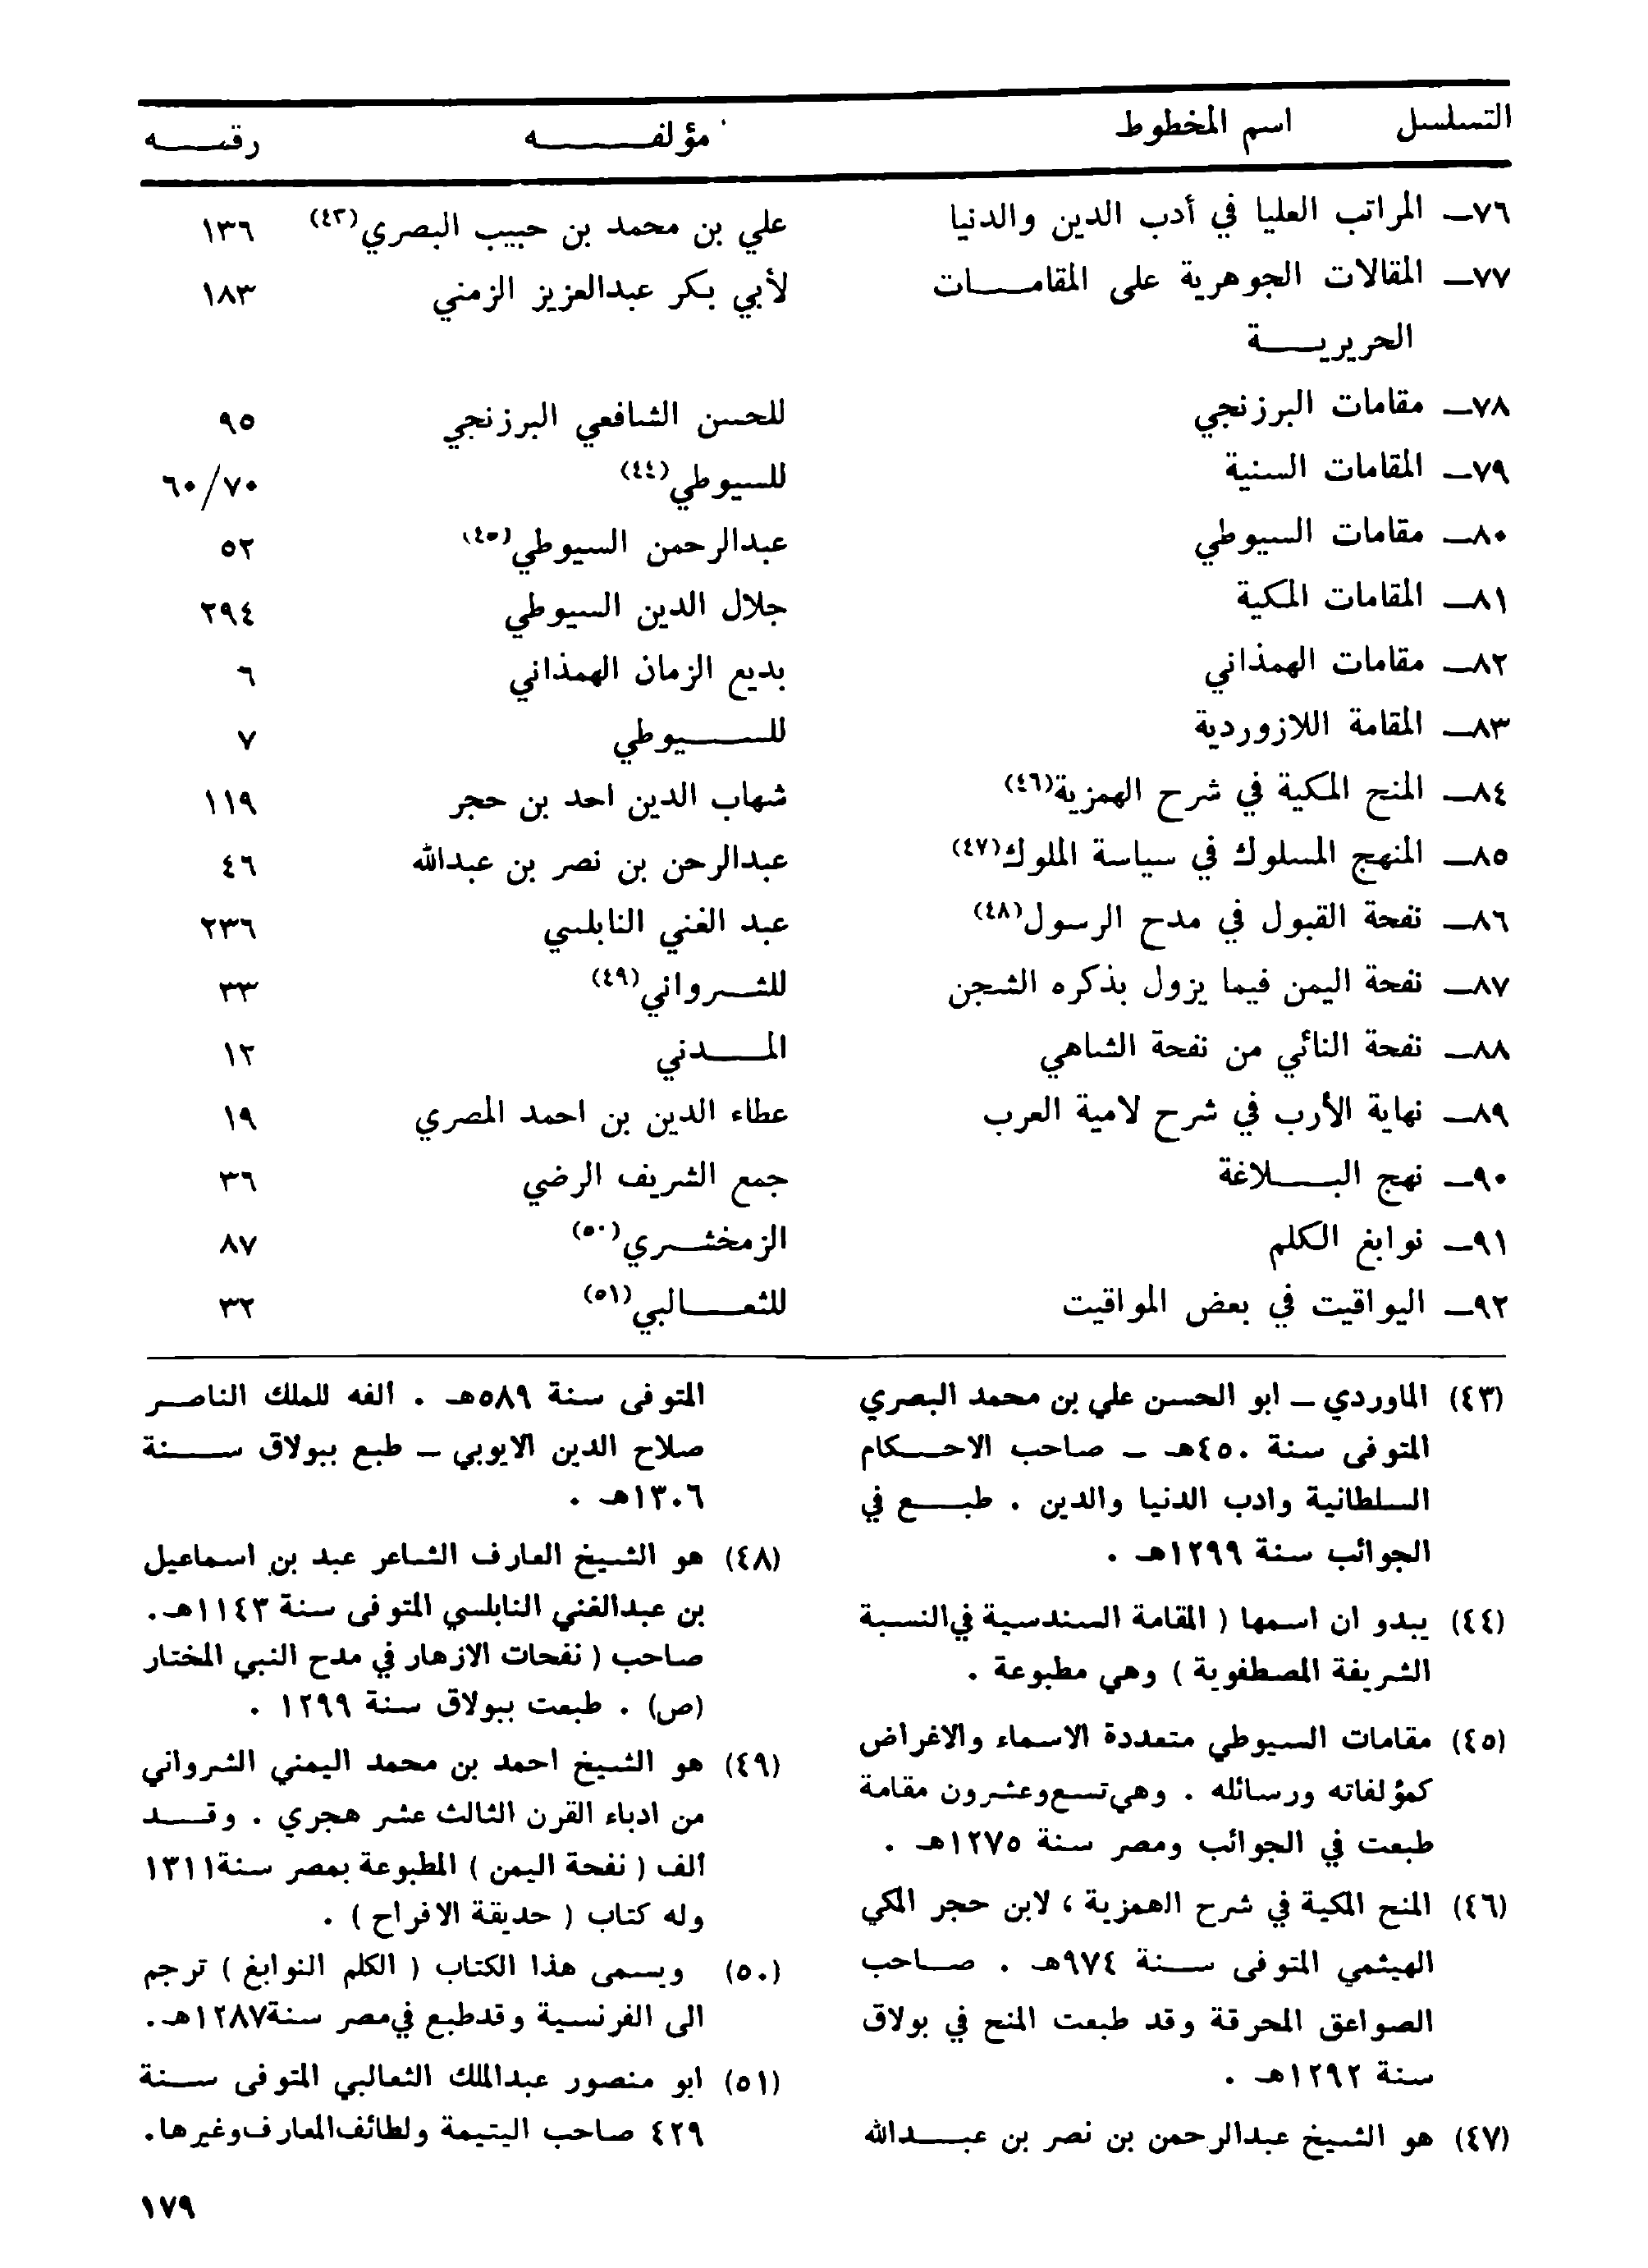 التسلسل اسم المخطوط مؤلفه رقمه
٧٦ـ المراتب العليا في أدب الدين والدنيا علي بن محمد بن حبيب البصري(٤٣) ١٣٦
٧٧ـ المقالات الجوهرية على المقامات لأبي بكر عبدالعزيز الزمني ١٨٣
الحريرية
٧٨ـ مقامات البرزنجي للحسن الشافعي البرزنجي ٩٥
٧٩ـ المقامات السنية للسيوطي(٤٤) ٦٠/٧٠
٨٠ـ مقامات السيوطي عبدالرحمن السيوطي(٤٥) ٥٢
٨١ـ المقامات المكية جلال الدين السيوطي ٢٩٤
٨٢ـ مقامات الهمذاني بديع الزمان الهمذاني ٦
٨٣ـ المقامة اللازوردية للسيوطي ٧
٨٤ـ المنح المكية في شرح الهمزية(٤٦) شهاب الدين احد بن حجر ١١٩
٨٥ـ المنهج المسلوك في سياسة الملوك(٤٧) عبدالرحن بن نصر بن عبدالله ٤٦
٨٦ـ نفحة القبول في مدح الرسول(٤٨) عبد الغني النابلسي ٢٣٦
٨٧ـ نفحة اليمن فيما يزول بذكره الشجن للشرواني(٤٩) ٣٣
٨٨ـ نفحة النائي من نفحة الشاهي المدني ١٢
٨٩ـ نهاية الأرب في شرح لامية العرب عطاء الدين بن احمد المصري ١٩
٩٠ـ نهج البلاغة جمع الشريف الرضي ٣٦
٩١ـ نوابغ الكلم الزمخشري(٥٠) ٨٧
٩٢ـ اليواقيت في بعض المواقيت للثعالبي(٥١) ٣٢
(٤٣) الماوردي ـ ابو الحسن علي بن محمد البصري
المتوفى سنة ٤٥٠هـ ـ صاحب الاحكام
السلطانية وادب الدنيا والدين . طبع في
الجوائب سنة ١٢٩٩هـ .
(٤٤) يبدو ان اسمها ( المقامة السندسية في النسبة
الشريفة المصطفوية ) وهي مطبوعة .
(٤٥) مقامات السيوطي متعددة الاسماء والاغراض
كمؤلفاته ورسائله . وهي تسع وعشرون مقامة
طبعت في الجوائب ومصر سنة ١٢٧٥هـ .
(٤٦) المنح المكية في شرح الهمزية ، لابن حجر المكي
الهيثمي المتوفى سنة ٩٧٤هـ . صاحب
الصواعق المحرقة وقد طبعت المنح في بولاق
سنة ١٢٩٢هـ .
(٤٧) هو الشيخ عبدالرحمن بن نصر بن عبدالله
المتوفى سنة ٥٨٩هـ . الفه للملك الناصر
صلاح الدين الايوبي ـ طبع ببولاق سنة
١٣٠٦هـ .
(٤٨) هو الشيخ العارف الشاعر عبد بن اسماعيل
بن عبدالغني النابلسي المتوفى سنة ١١٤٣هـ.
صاحب ( نفحات الازهار في مدح النبي المختار
(ص) . طبعت ببولاق سنة ١٢٩٩ .
(٤٩) هو الشيخ احمد بن محمد اليمني الشرواني
من ادباء القرن الثالث عشر هجري . وقد
ألف ( نفحة اليمن ) المطبوعة بمصر سنة ١٣١١
وله كتاب ( حديقة الافراح ) .
(٥٠) ويسمى هذا الكتاب ( الكلم النوابغ ) ترجم
الى الفرنسية وقد طبع في مصر سنة ١٢٨٧هـ.
(٥١) ابو منصور عبدالملك الثعالبي المتوفى سنة
٤٢٩ صاحب اليتيمة ولطائف المعارف وغيرها.
١٧٩